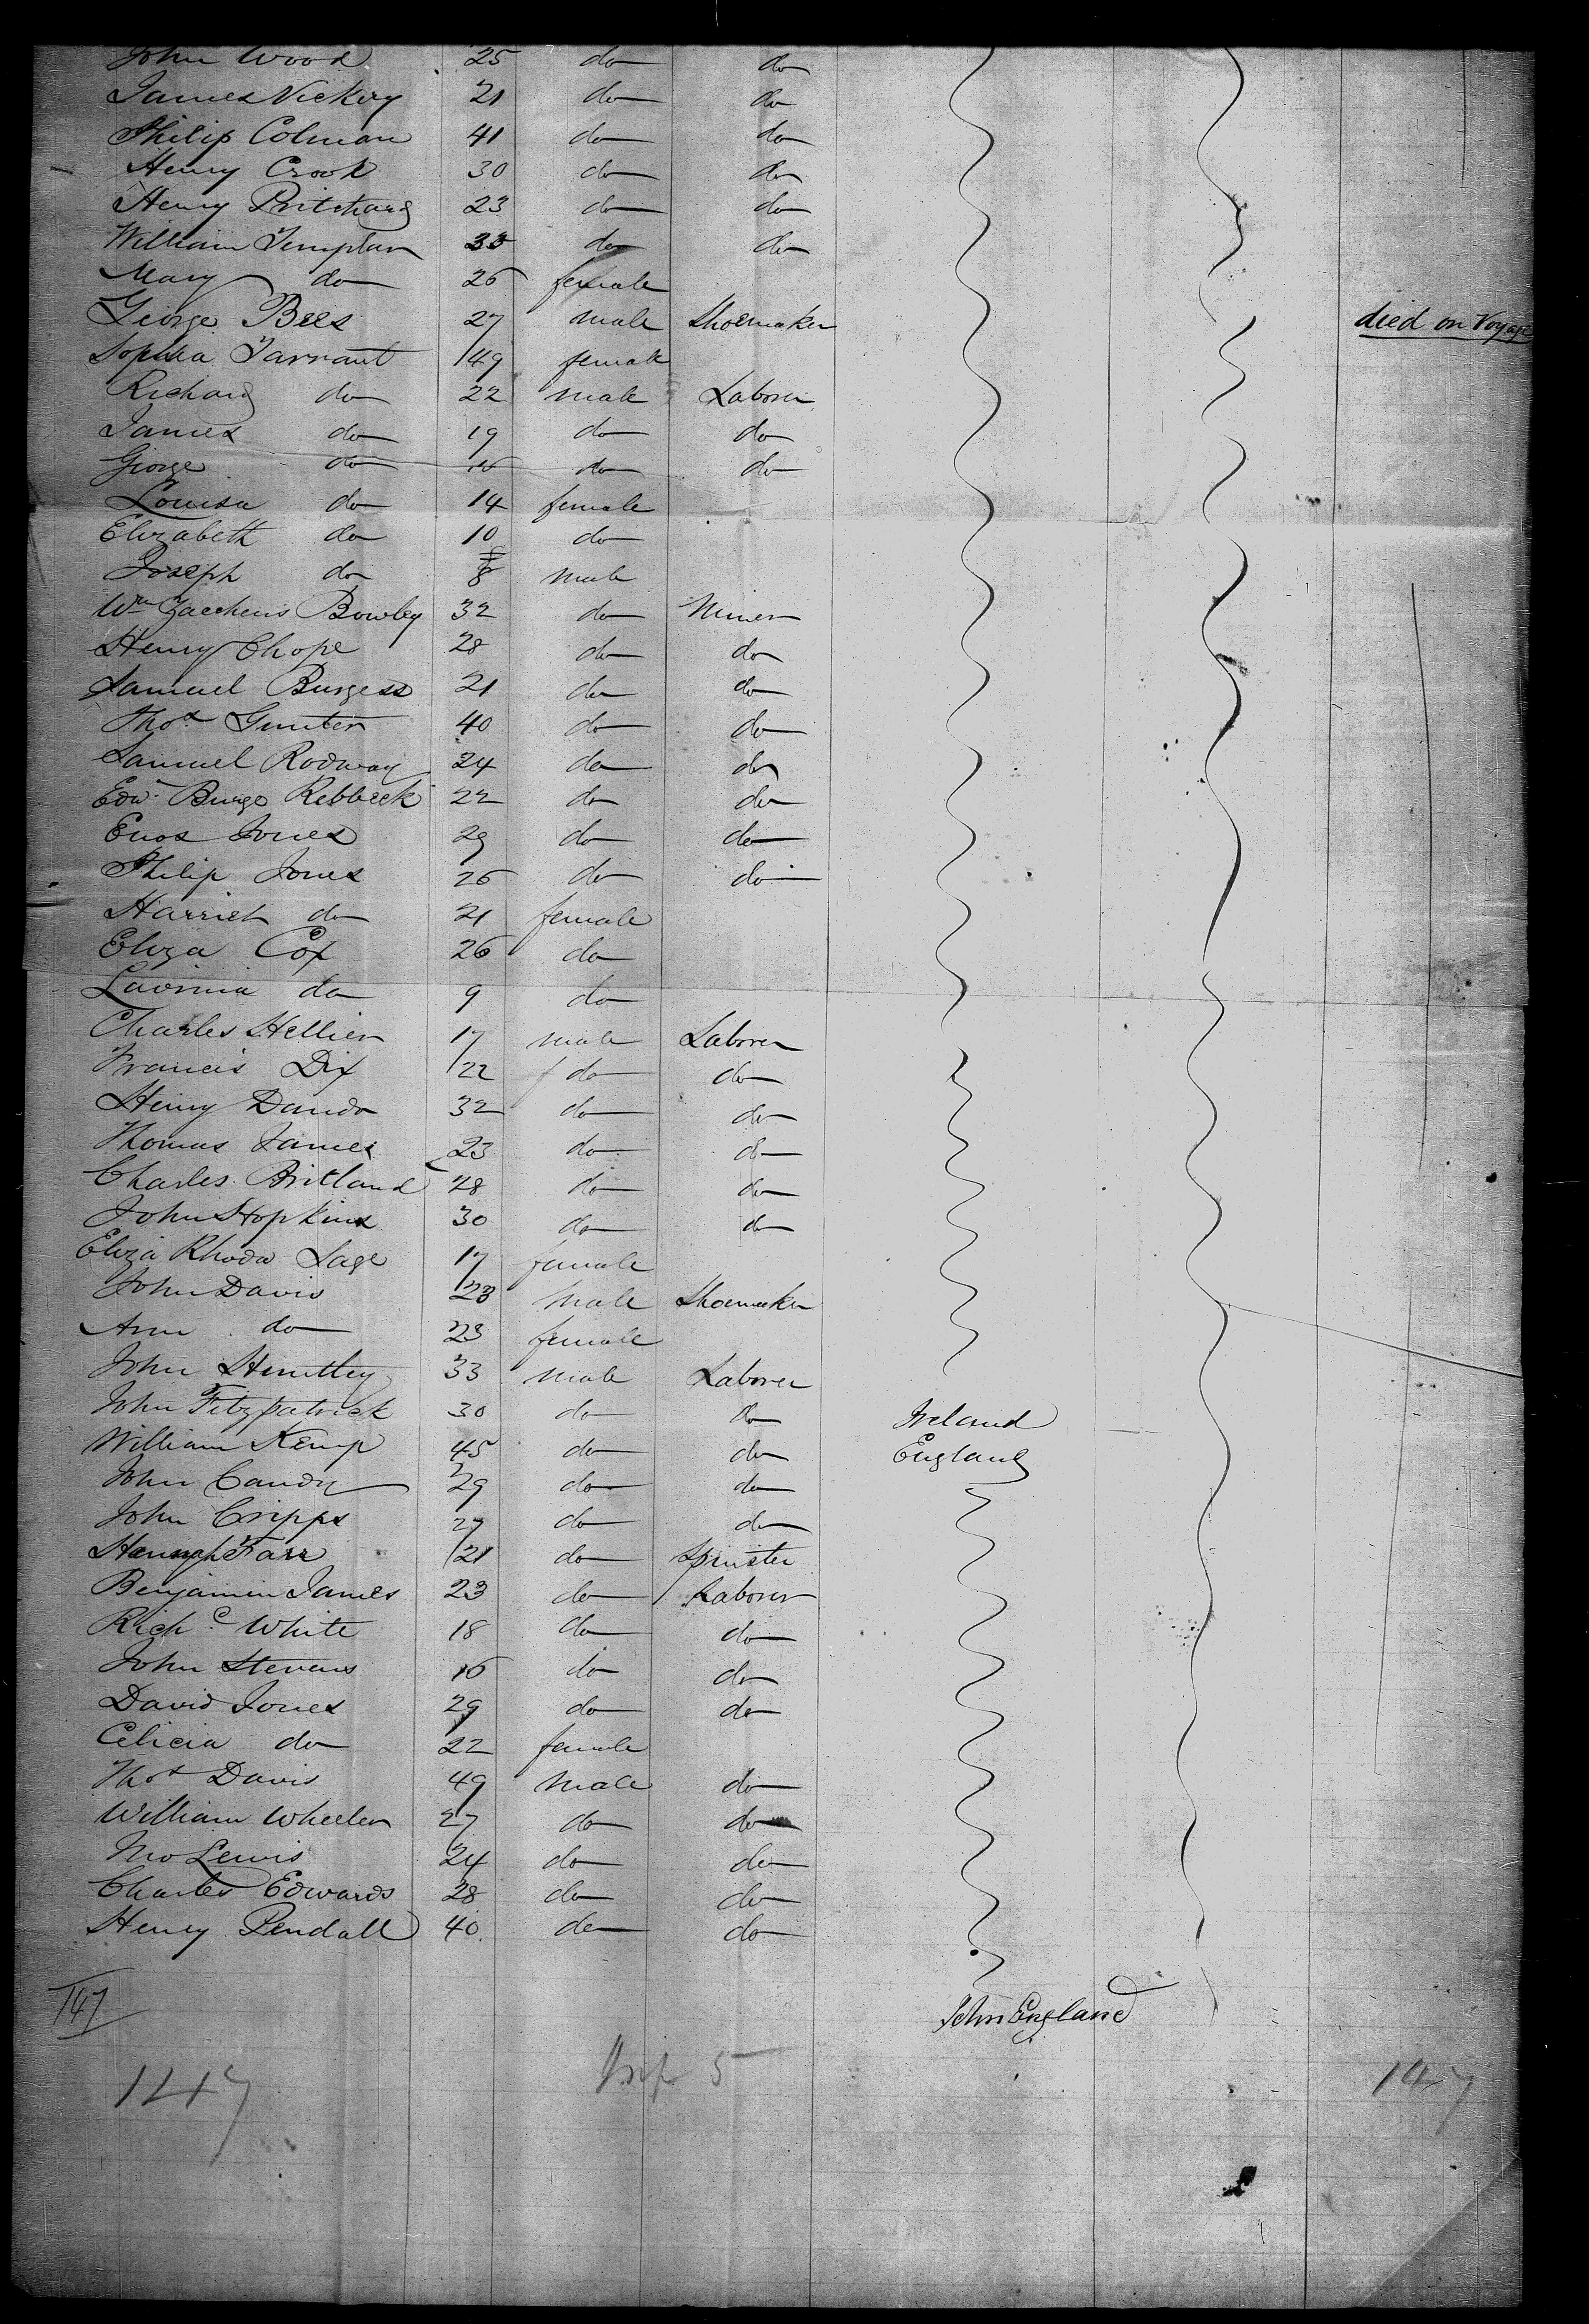 John Wood 25 do do
James Vickery 21 do do
Philip Colman 41 do do
Henry Crook 30 do do
Henry Pritchard 23 do do
William Templar 33 do do
Mary do 26 female
George Bees 27 male Shoemaker died on Voyage
Sophia Tarrant 49 female
Richard do 22 male Laborer
James do 19 do do
George do 16 do do
Louisa do 14 female
Elizabeth do 10 do
Joseph do 8 male
Wm Zaccheus Bowley 32 do Miner
Henry Chope 28 do do
Samuel Burgess 21 do do
Thos Gunter 40 do do
Samuel Rodway 24 do do
Edwd Burge Rebbeck 22 do do
Enos Jones 29 do do
Philip Jones 26 do do
Harriet do 21 female
Eliza Cox 26 do
Lavinia do 9 do
Charles Hellier 17 male Laborer
Francis Dix 22 do do
Henry Dando 32 do do
Thomas James 23 do do
Charles Britland 48 do do
John Hopkins 30 do do
Eliza Rhoda Sage 17 female
John Davis 23 male Shoemaker
Ann do 23 female
John Huntley 33 male Laborer
John Fitzpatrick 30 do do Ireland
William Kemp 45 do do England
John Candy 29 do do
John Cripps 27 do do
Hannah Farr 21 do Spinster
Benjamin James 23 do Laborer
Richd White 18 do do
John Stevens 16 do do
David Jones 29 do do
Celicia do 22 female
Thos Davis 49 male do
William Wheeler 27 do do
Jno Lewis 24 do do
Charles Edwards 28 do do
Henry Pendall 40 do do
147 John England
147 5 147